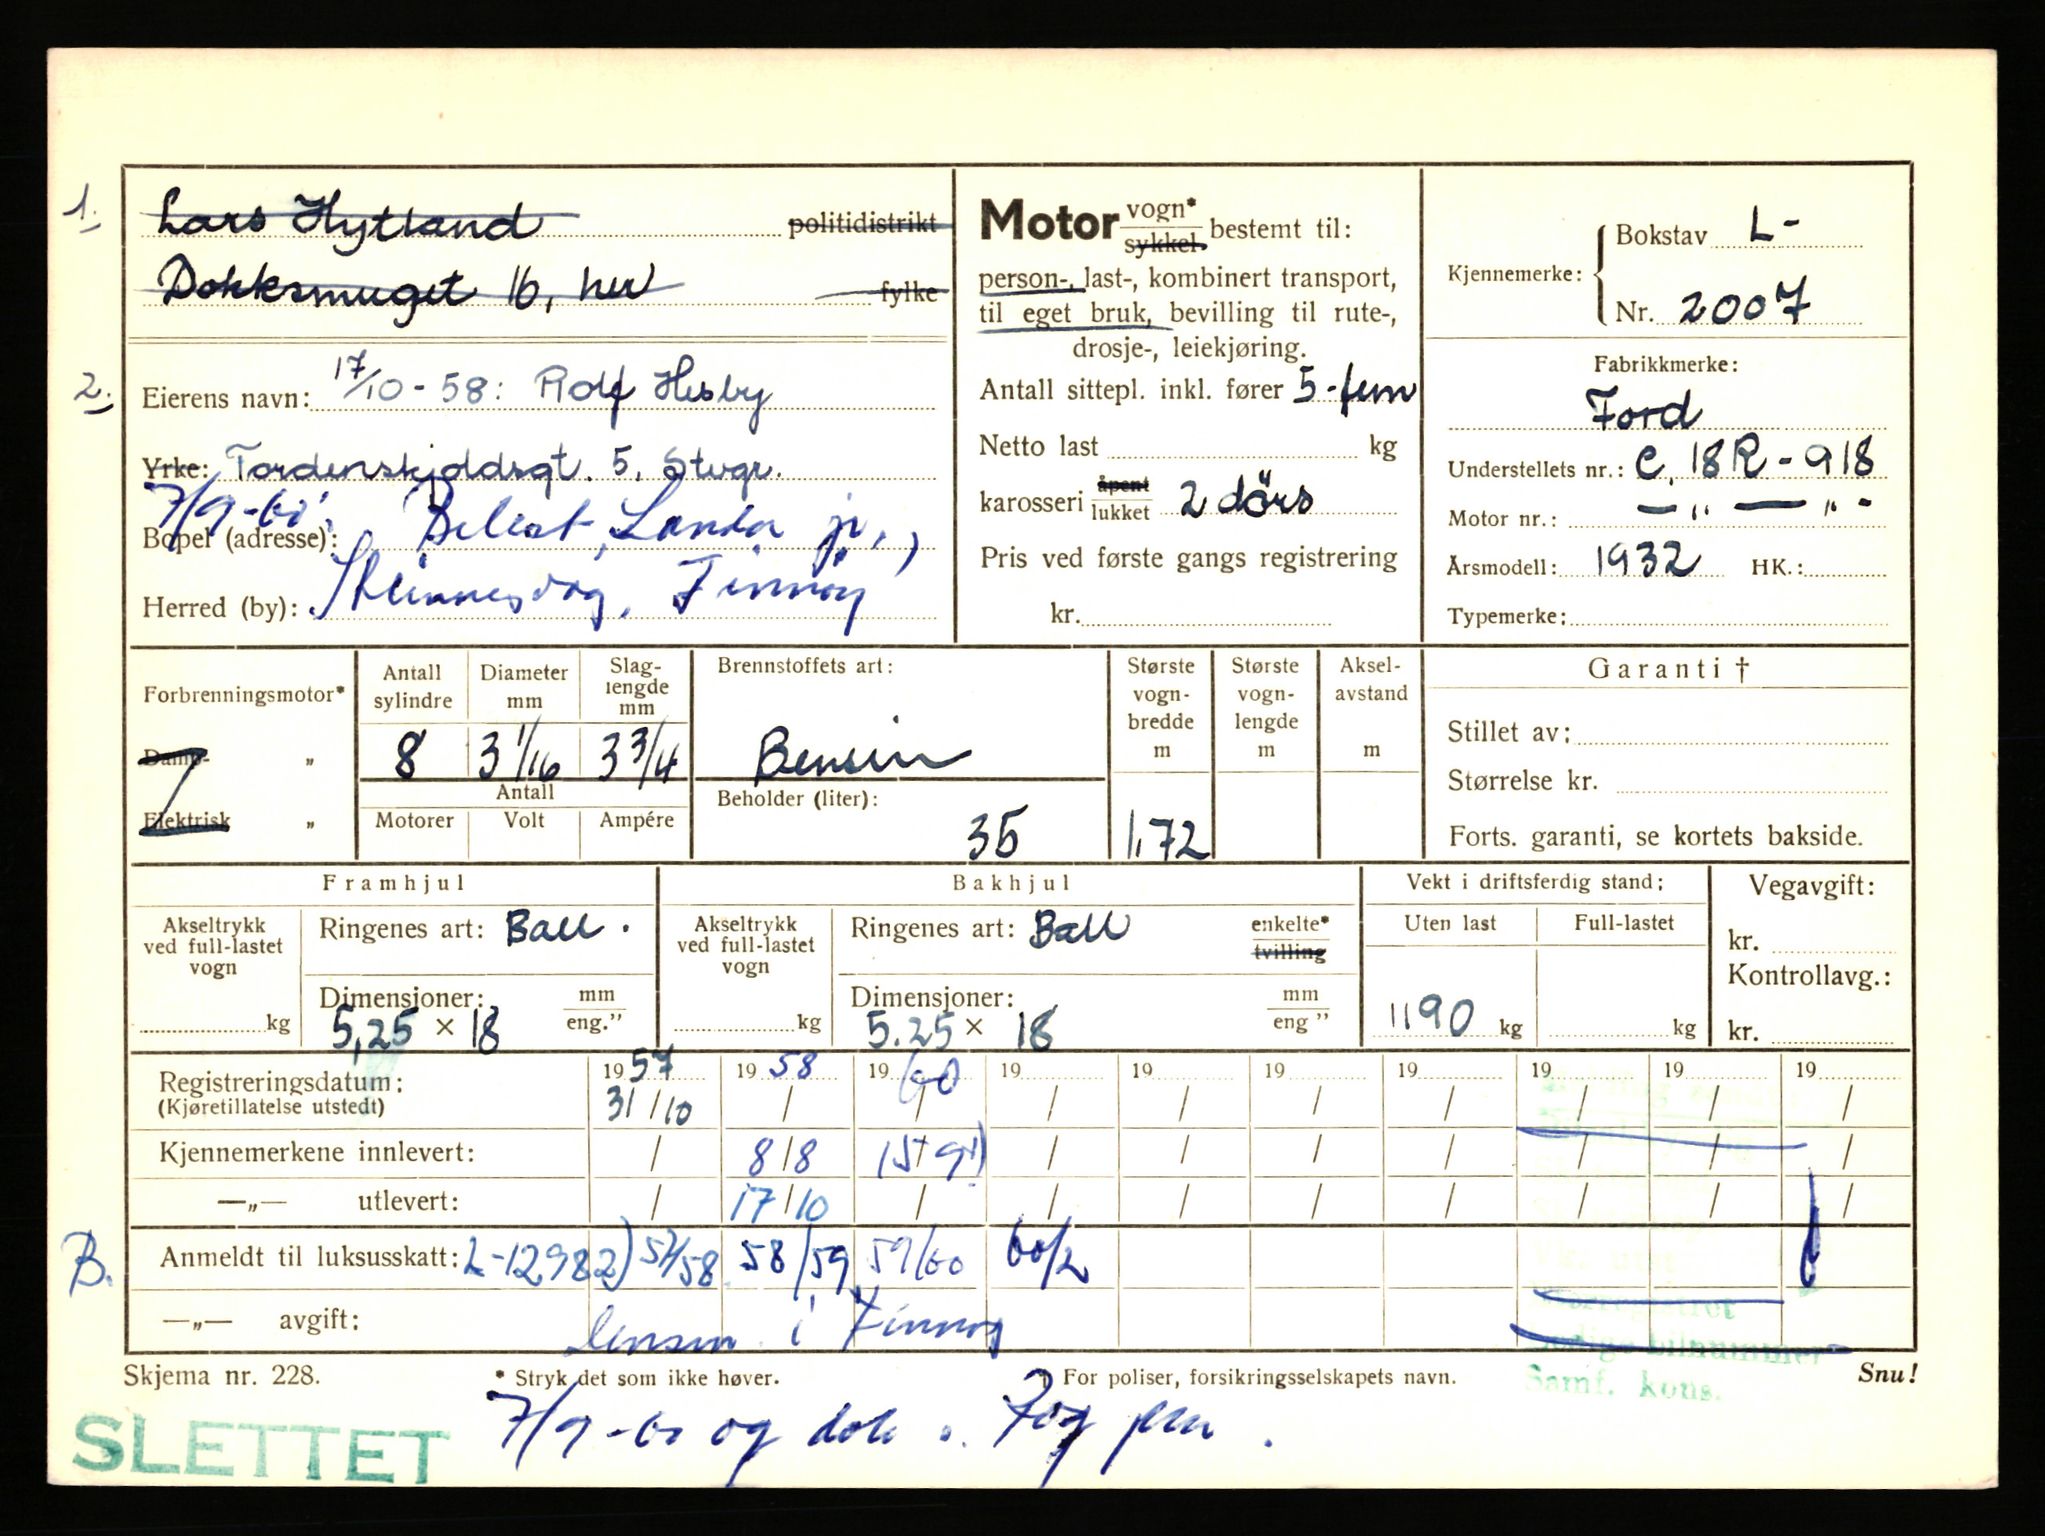 1.
Lars Hytland politidistrikt
Dokksmuget 16, her fylke
2.
Eierens navn: 17/10-58: Rolf Hesby
Yrke: Tordenskjoldsgt. 5, Stvgr.
7/9-60:
Bopel (adresse): Landa jr.,
Herred (by): Finnøy
Motor vogn* sykkel. bestemt til:
person-, last-, kombinert transport,
til eget bruk, bevilling til rute-,
drosje-, leiekjøring.
Antall sittepl. inkl. fører 5-fem
Netto last kg
karosseri åpent lukket 2 dörs
Pris ved første gangs registrering
kr.
Kjennemerke: Bokstav L-
Nr. 2007
Fabrikkmerke:
Ford
Understellets nr.: C.18R-918
Motor nr.: — „ — „ -
Årsmodell: 1932 HK.:
Typemerke:
Forbrenningsmotor*
Damp- „
Elektrisk „
Antall sylindre
Diameter mm
Slag-lengde mm
8 3 1/16 3 3/4
Antall
Motorer Volt Ampére
Brennstoffets art:
Bensin
Beholder (liter):
35
Største vogn-bredde m
1,72
Største vogn-lengde m
Aksel-avstand m
Garanti †
Stillet av:
Størrelse kr.
Forts. garanti, se kortets bakside.
Framhjul
Akseltrykk ved full-lastet vogn
kg
Ringenes art: Ball.
Dimensjoner: mm eng."
5,25 × 18
Bakhjul
Akseltrykk ved full-lastet vogn
kg
Ringenes art: Ball enkelte* tvilling
Dimensjoner: mm eng "
5.25 × 18
Vekt i driftsferdig stand:
Uten last Full-lastet
1190 kg kg
Vegavgift:
kr.
Kontrollavg.:
kr.
Registreringsdatum: 1957 1958 1960 19 19 19 19 19 19 19
(Kjøretillatelse utstedt) 31/10 / / / / / / / / /
Kjennemerkene innlevert: / 8/8 / / / / / / /
—„— utlevert: / 17/10 / / / / / / / /
B.
Anmeldt til luksusskatt: L-12982) 57/58 58/59 59/60 60/2
—„— avgift: i Finnøy
Skjema nr. 228.
* Stryk det som ikke høver.
† For poliser, forsikringsselskapets navn.
Snu!
Samf. kons.
SLETTET
7/9-60 og